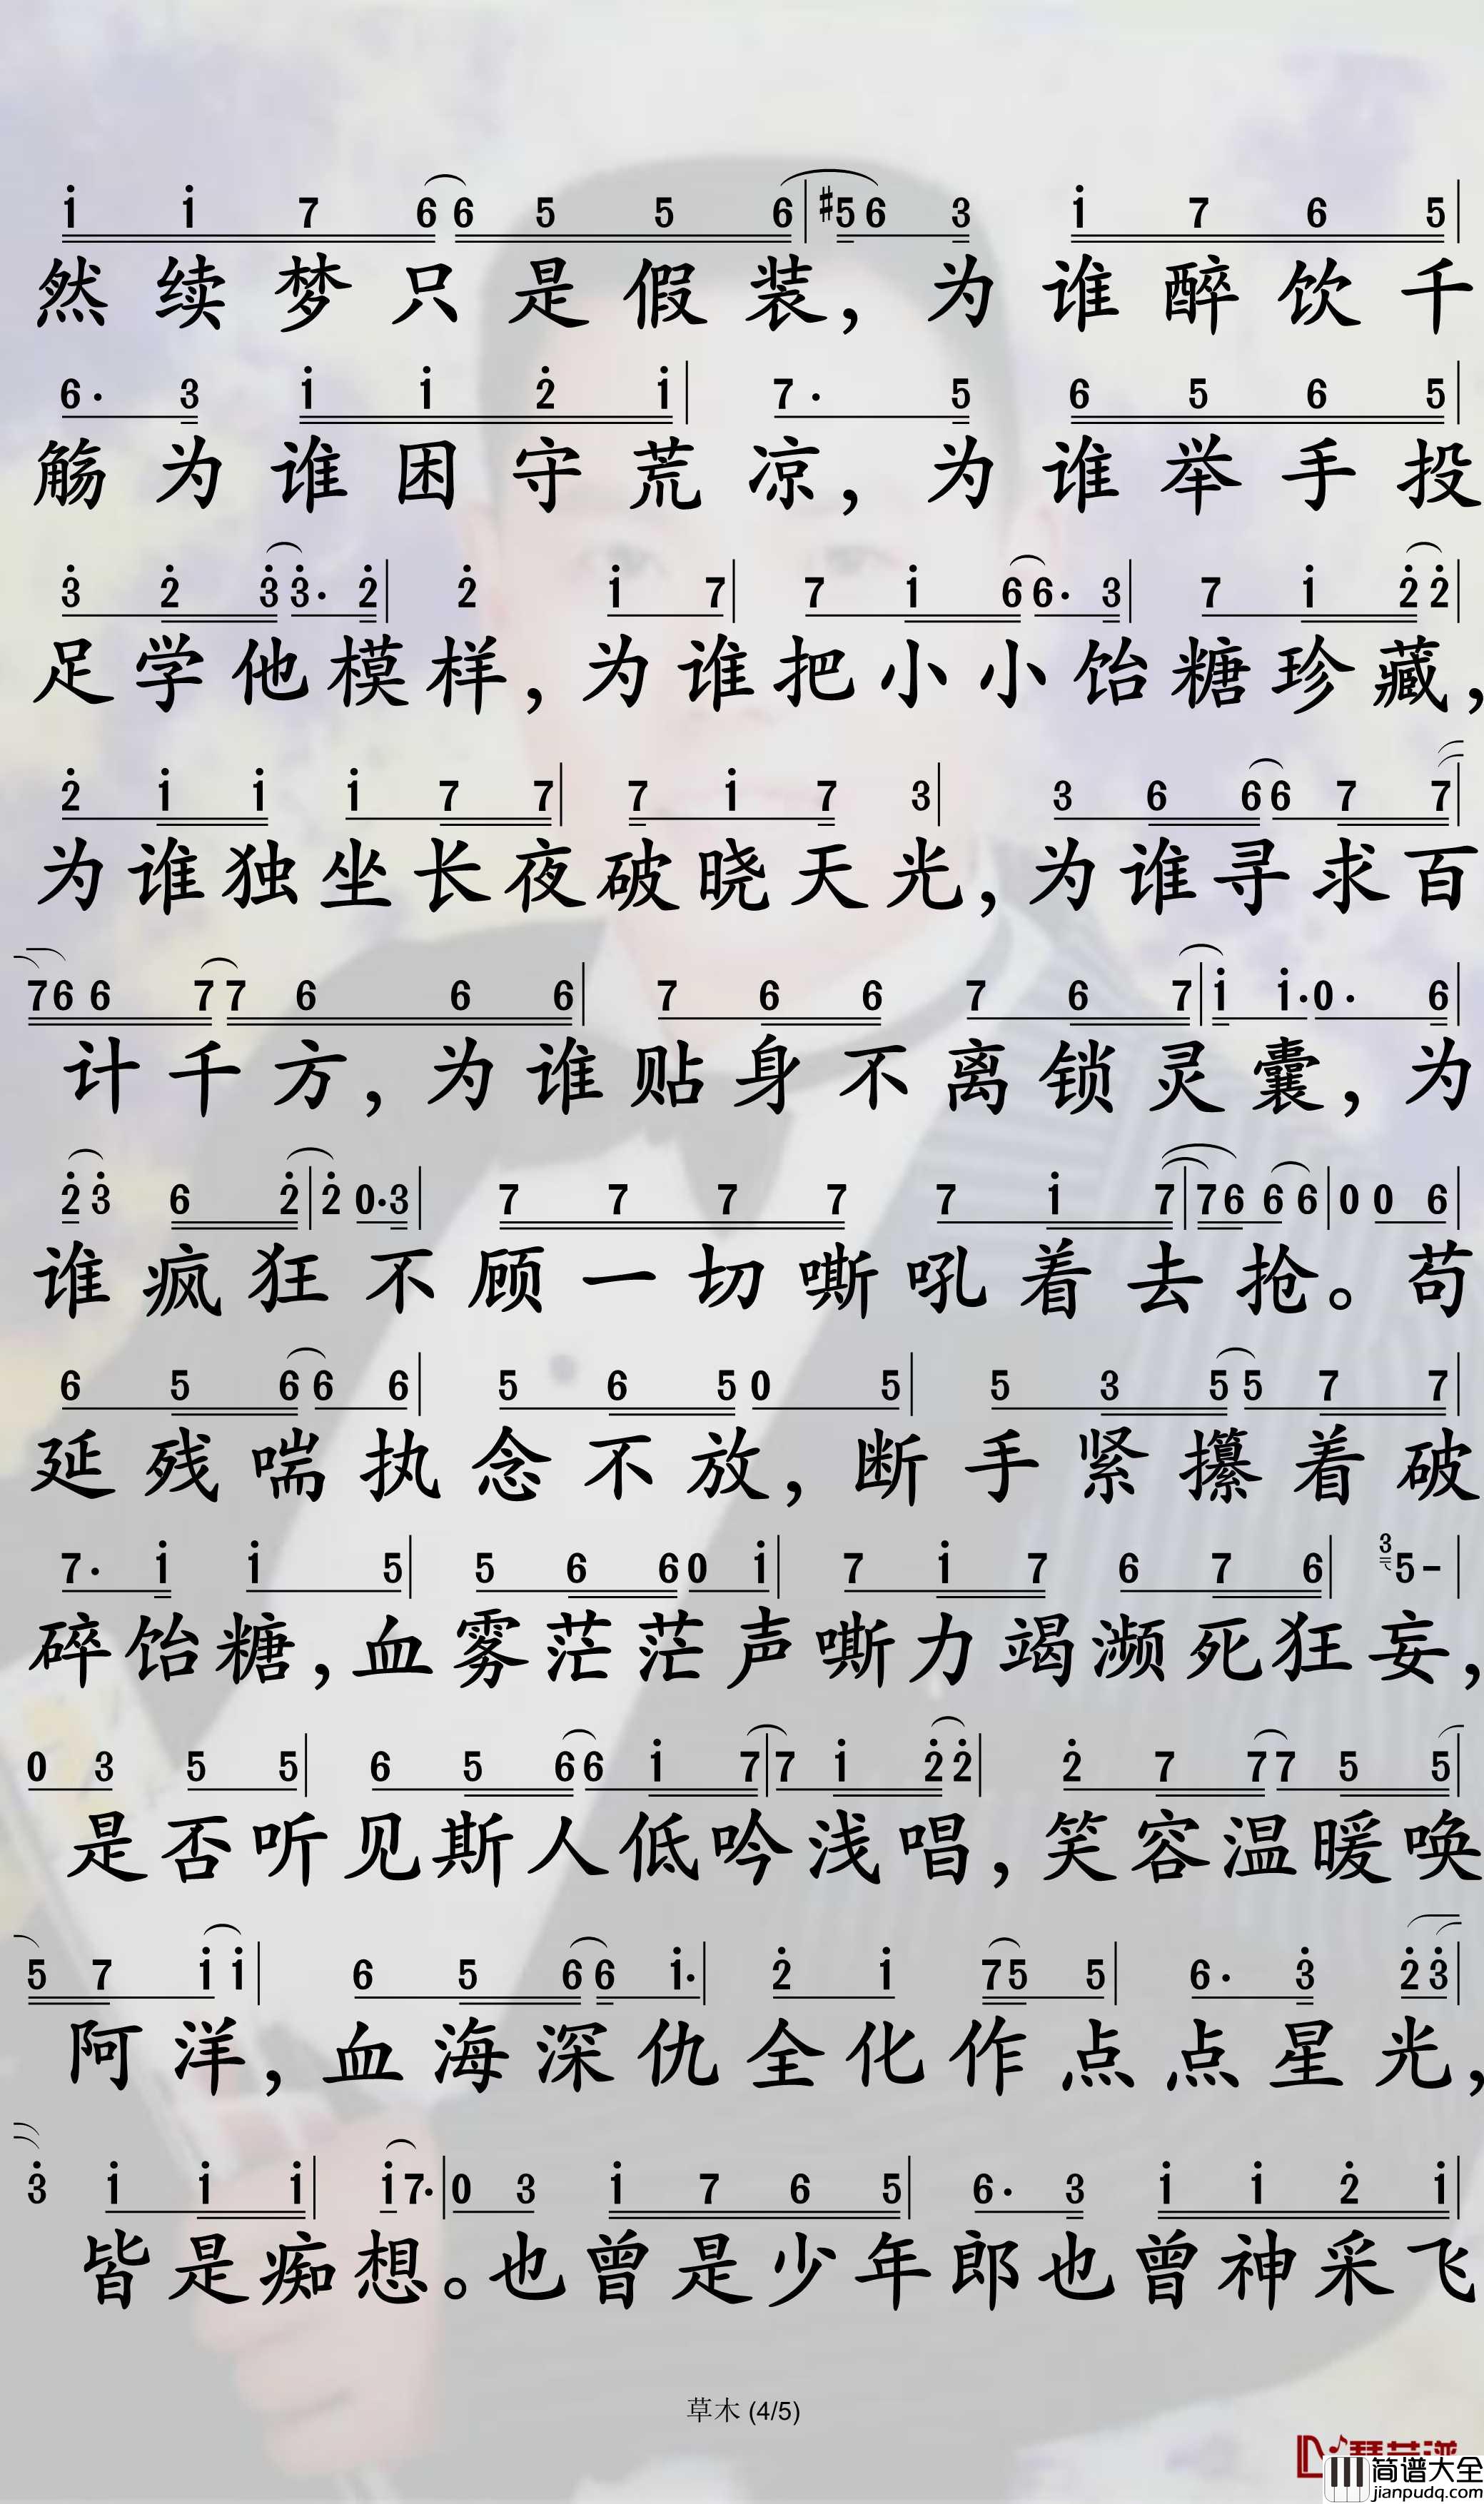 i i 7 6 6 5 5 6 | #5 6 3 i 7 6 5 |
然续梦只是假装，为谁醉饮千
6· 3 i i 2 i | 7· 5 6 5 6 5 |
觞为谁困守荒凉，为谁举手投
3 2 3 3· 2 | 2 i 7 | 7 i 6 6· 3 | 7 i 2 2 |
足学他模样，为谁把小小饴糖珍藏，
2 i i i 7 7 | 7 i 7 3 | 3 6 6 6 7 7 |
为谁独坐长夜破晓天光，为谁寻求百
7 6 6 7 7 6 6 6 | 7 6 6 7 6 7 | i i· 0· 6 |
计千方，为谁贴身不离锁灵囊，为
2 3 6 2 | 2 0· 3 | 7 7 7 7 7 i 7 | 7 6 6 6 | 0 0 6 |
谁疯狂不顾一切嘶吼着去抢。苟
6 5 6 6 6 | 5 6 5 0 5 | 5 3 5 5 7 7 |
延残喘执念不放，断手紧攥着破
7· i i 5 | 5 6 6 0 i | 7 i 7 6 7 6 | 3 5 - |
碎饴糖，血雾茫茫声嘶力竭濒死狂妄，
0 3 5 5 | 6 5 6 6 i 7 | 7 i 2 2 | 2 7 7 7 5 5 |
是否听见斯人低吟浅唱，笑容温暖唤
5 7 i i | 6 5 6 6 i· | 2 i 7 5 5 | 6· 3 2 3 |
阿洋，血海深仇全化作点点星光，
3 i i i | i 7· | 0 3 i 7 6 5 | 6· 3 i i 2 i |
皆是痴想。也曾是少年郎也曾神采飞
草木 (4/5)
简谱大全
jianpudq.com